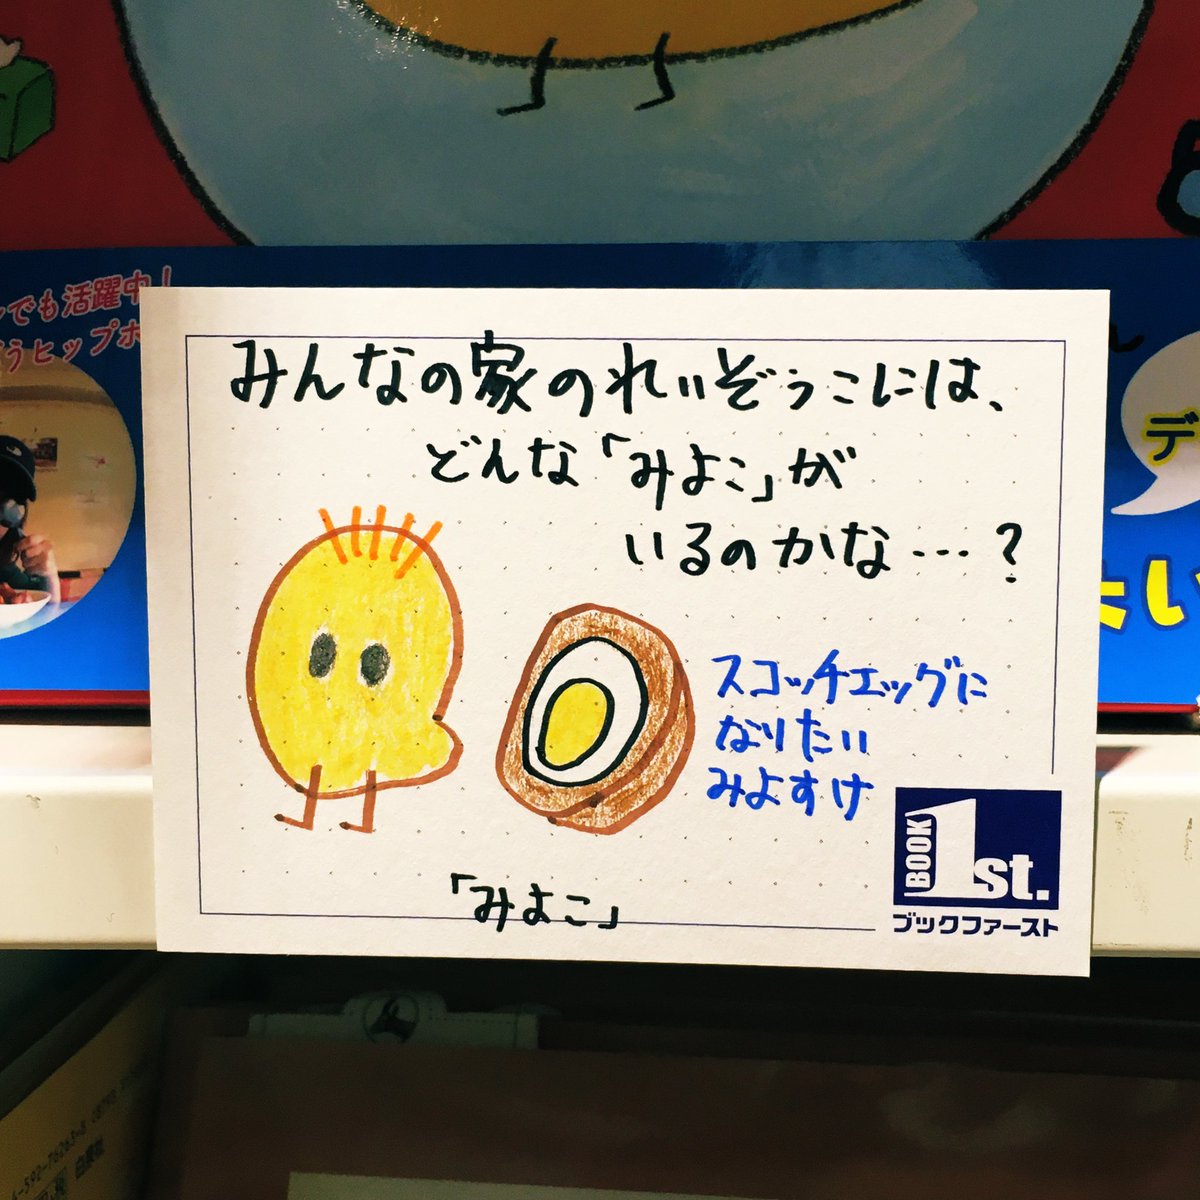 でも活躍中!
うヒップホ
デ
い
みんなの家のれいぞうこには、
どんな「みよこ」が
いるのかな…?
スコッチエッグに
なりたい
みよすけ
「みよこ」
BOOK 1st.
ブックファースト